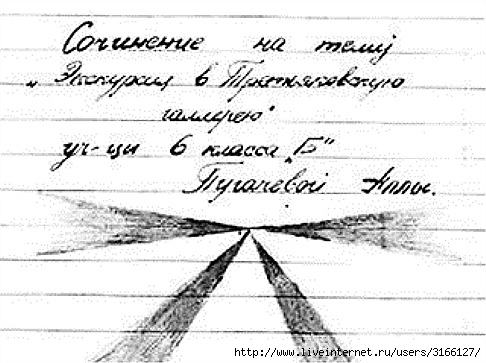 Сочинение на тему
„Экскурсия в Третьяковскую
галлерею"
уч-цы 6 класса „Б"
Пугачевой Аллы.
http://www.liveinternet.ru/users/3166127/